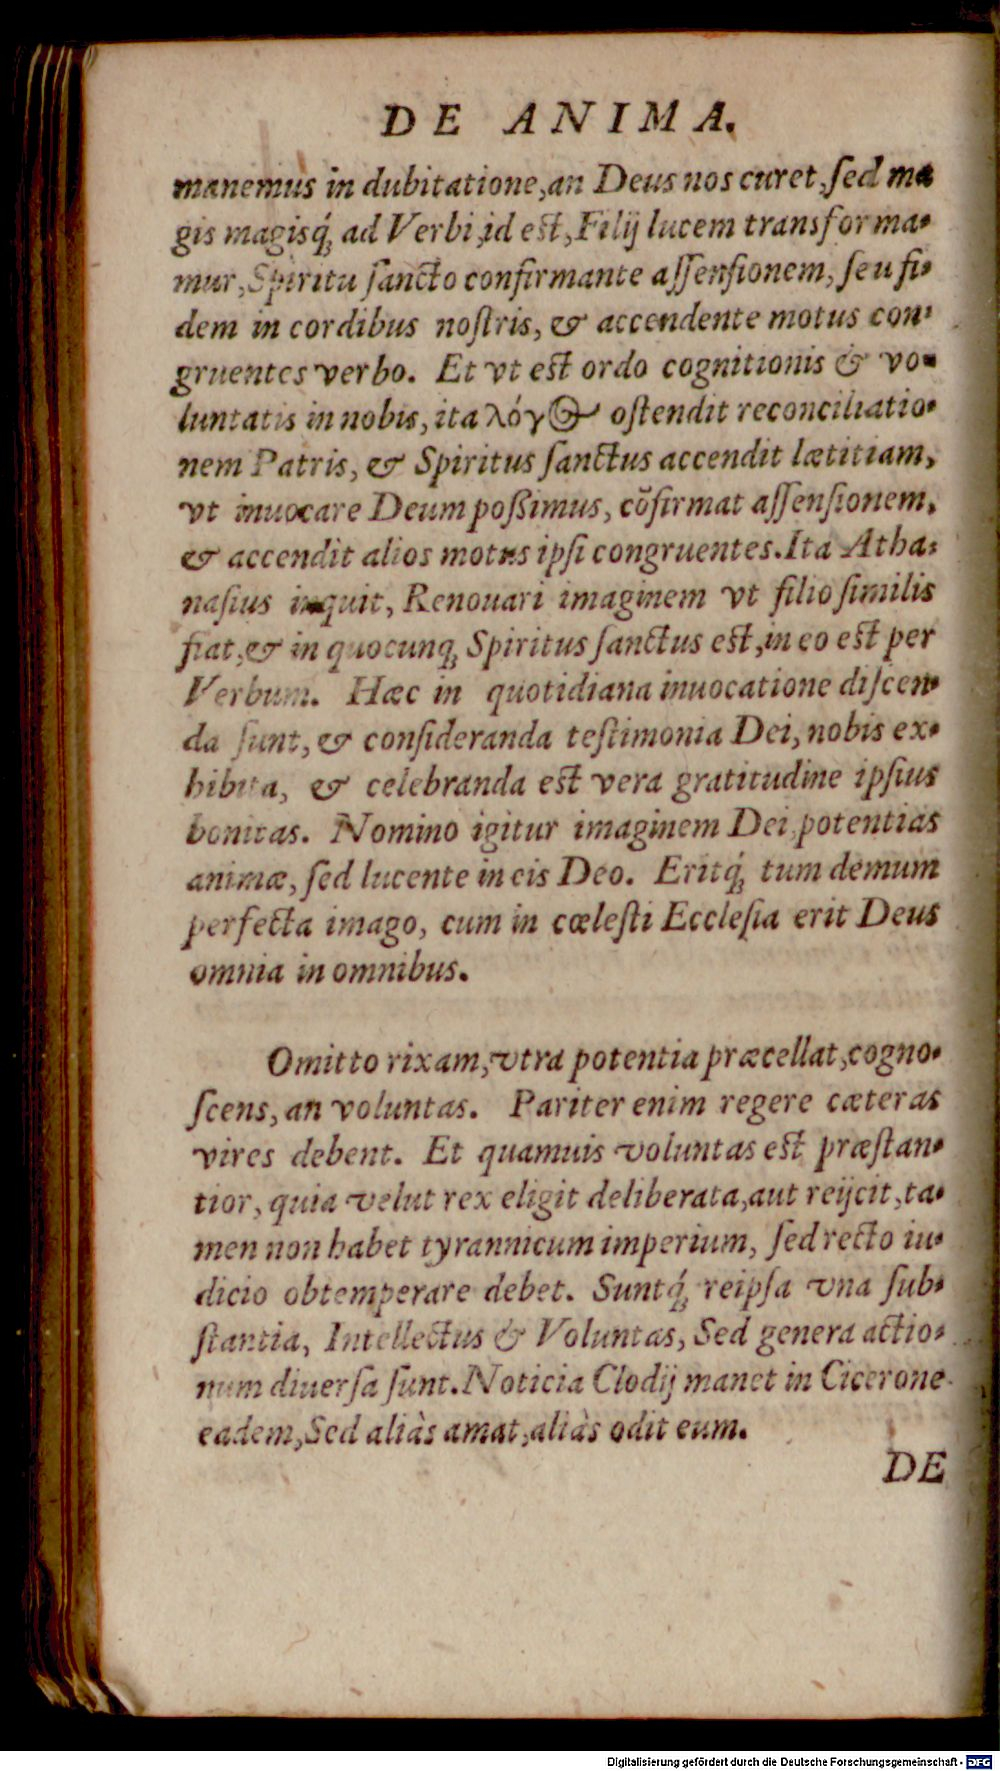 DE ANIMA.
manemus in dubitatione, an Deus nos curet, ſed ma
gis magisq́ꝫ ad Verbi, id eſt, Filij lucem transforma-
mur, Spiritu ſancto confirmante aſſenſionem, ſeu fi-
dem in cordibus noſtris, & accendente motus con-
gruentes verbo. Et vt eſt ordo cognitionis & vo-
luntatis in nobis, ita λόγος oſtendit reconciliatio-
nem Patris, & Spiritus ſanctus accendit lætitiam,
vt inuocare Deum poßimus, cõfirmat aſſenſionem,
& accendit alios motus ipſi congruentes. Ita Atha-
naſius inquit, Renouari imaginem vt filio ſimilis
fiat, & in quocunqꝫ Spiritus ſanctus eſt, in eo eſt per
Verbum. Hæc in quotidiana inuocatione diſcen-
da ſunt, & conſideranda teſtimonia Dei, nobis ex-
hibita, & celebranda eſt vera gratitudine ipſius
bonitas. Nomino igitur imaginem Dei, potentias
animæ, ſed lucente in eis Deo. Eritq́ꝫ tum demum
perfecta imago, cum in cœleſti Eccleſia erit Deus
omnia in omnibus.
Omitto rixam, vtra potentia præcellat, cogno-
ſcens, an voluntas. Pariter enim regere cæteras
vires debent. Et quamuis voluntas eſt præſtan-
tior, quia velut rex eligit deliberata, aut reijcit, ta-
men non habet tyrannicum imperium, ſed recto iu-
dicio obtemperare debet. Suntq́ꝫ reipſa vna ſub-
ſtantia, Intellectus & Voluntas, Sed genera actio-
num diuerſa ſunt. Noticia Clodij manet in Cicerone
eadem, Sed aliàs amat, aliàs odit eum.
DE
Digitalisierung gefördert durch die Deutsche Forschungsgemeinschaft - DFG